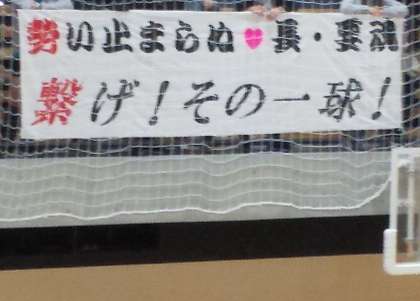 勢い止まらぬ♥長・要魂
繋げ！その一球！